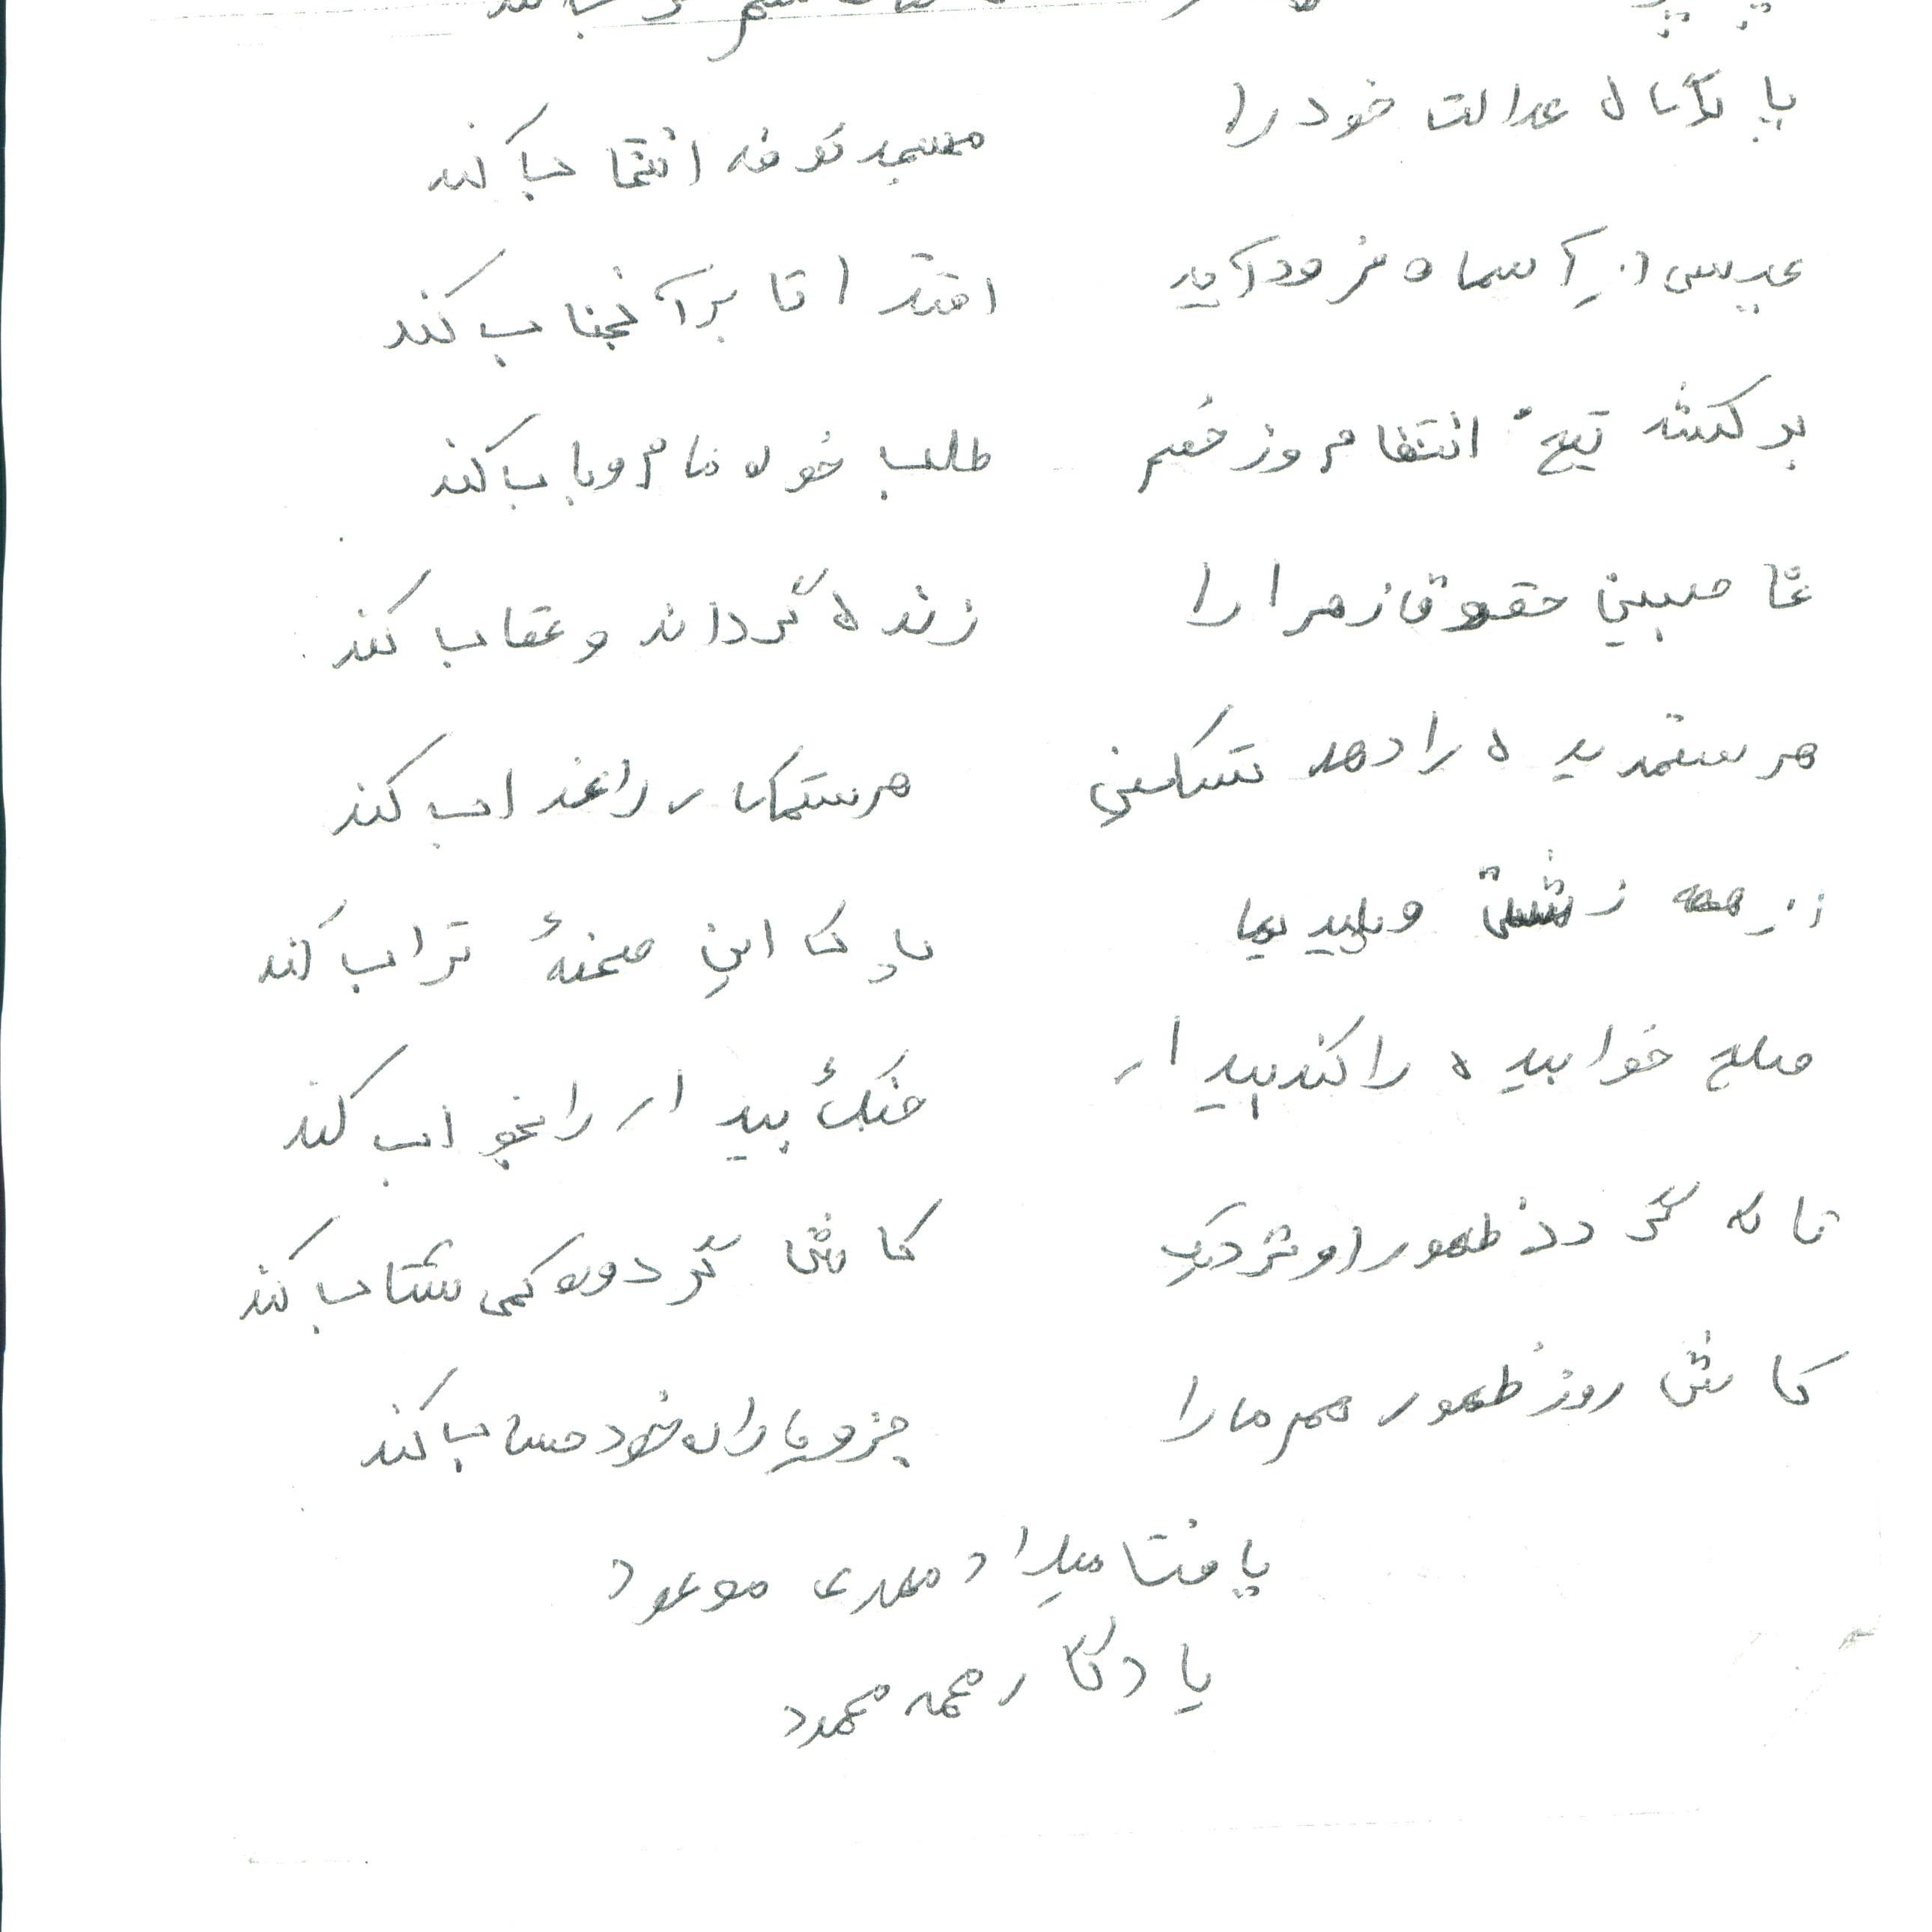 پایگاه عدالت خود را مسجد کوفه انتخاب کند
عیسی از آسمان فرود آید اقتدا تا بر آنجناب کند
بر کشد تیغ انتقام و ز خصم طلب خون مام و باب کند
غاصبین حقوق زهرا را زنده گرداند و عقاب کند
هر ستمدیده را دهد تسکین هر ستمکار را عذاب کند
از همه زشتی و پلیدیها پاک این صحنهٔ تراب کند
صلح خوابیده را کند بیدار جنگ بیدار را بخواب کند
تا که گردد ظهور او نزدیک کاش گردون کمی شتاب کند
کاش روز ظهور هم ما را جزو یاران خود حساب کند
یافتا میلاد مهدی موعود
یادگار محمد محمود